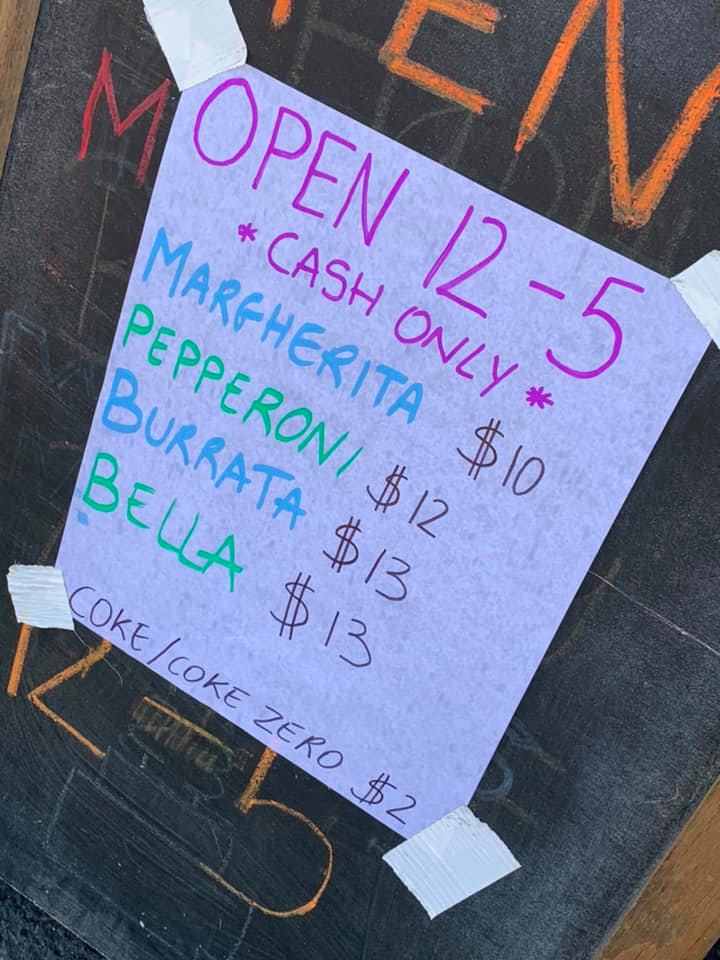 OPEN 12-5
*CASH ONLY*
MARGHERITA $10
PEPPERONI $12
BURRATA $13
BELLA $13
COKE/COKE ZERO $2
M
12-5